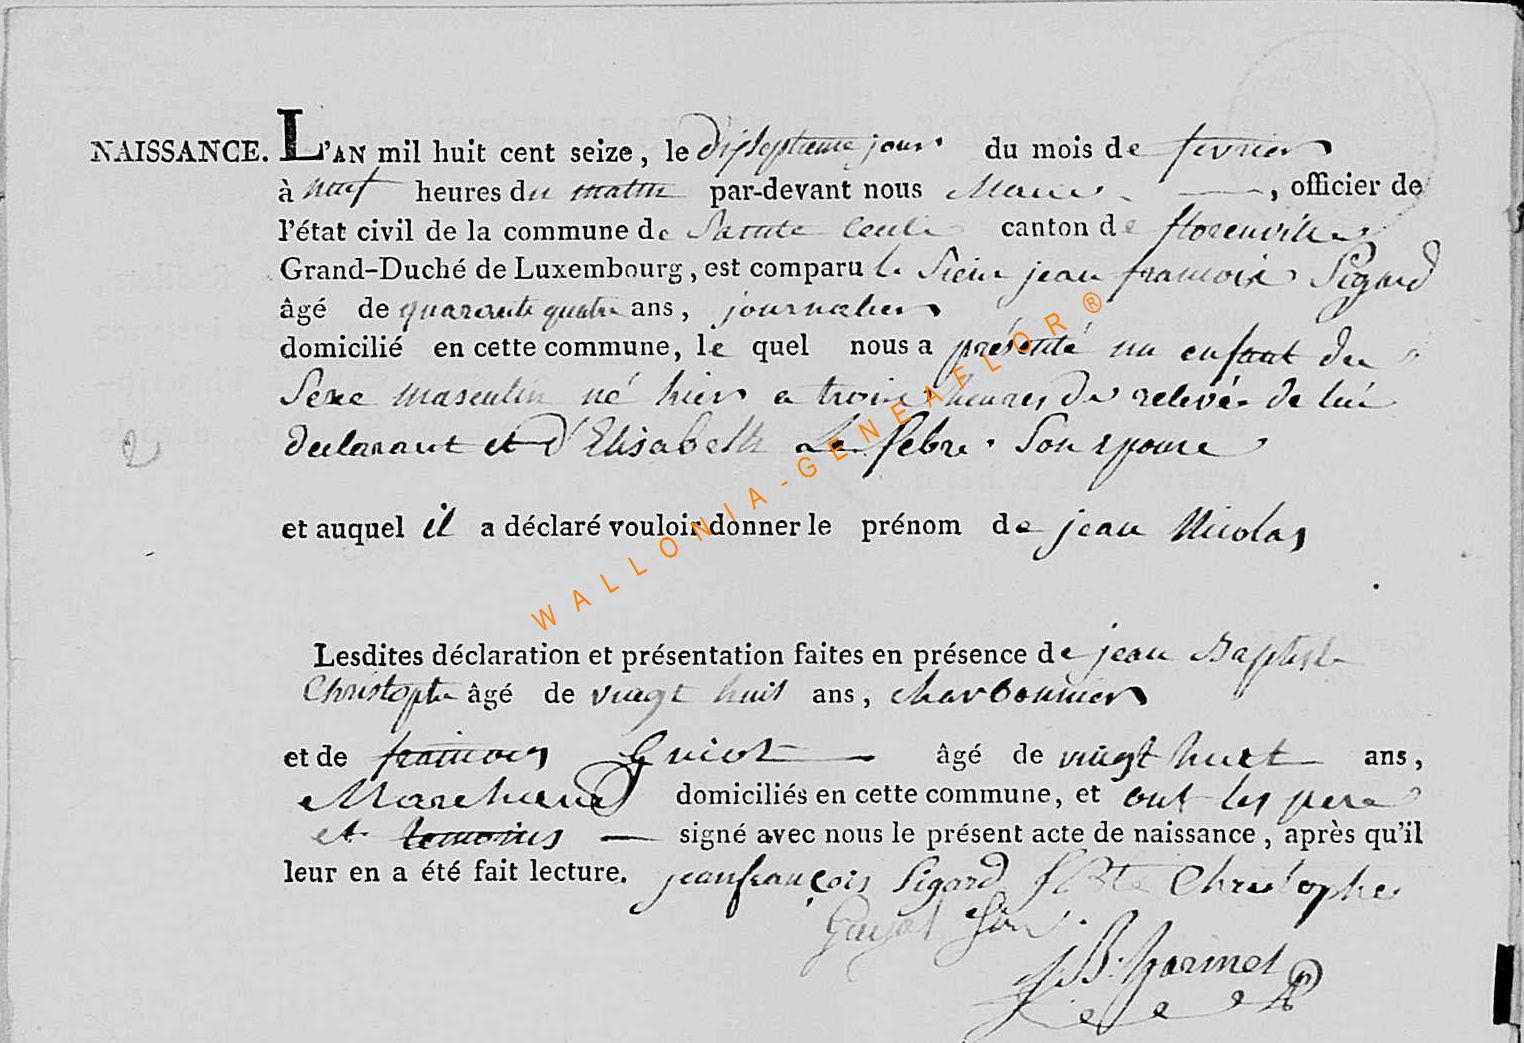 NAISSANCE. L'AN mil huit cent seize, le disseptieme jour du mois de fevrier
à neuf heures du matin par-devant nous Maire, officier de
l'état civil de la commune de Sainte Cecile canton de florenville
Grand-Duché de Luxembourg, est comparu le Sieur jean francois Sigard
âgé de quarante quatre ans, journalier
domicilié en cette commune, le quel nous a présenté un enfant du
Sexe masculin né hier a trois heures de relevée de lui
declarant et d'Elisabeth Le febre Son epouse
2
et auquel il a déclaré vouloir donner le prénom de jean Nicolas
WALLONIA-GENEAFLOR®
Lesdites déclaration et présentation faites en présence de jean Baptiste
Christophe âgé de vingt huit ans, charbonnier
et de francois Guiot âgé de vingt huit ans,
Marchand domiciliés en cette commune, et ont les pere
et temoins signé avec nous le présent acte de naissance, après qu'il
leur en a été fait lecture. jeanfrançois Sigard Christophe